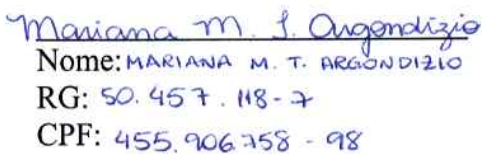 Mariana M. T. Argondizio
Nome: MARIANA M. T. ARGONDIZIO
RG: 50.457.118-7
CPF: 455.906.758-98